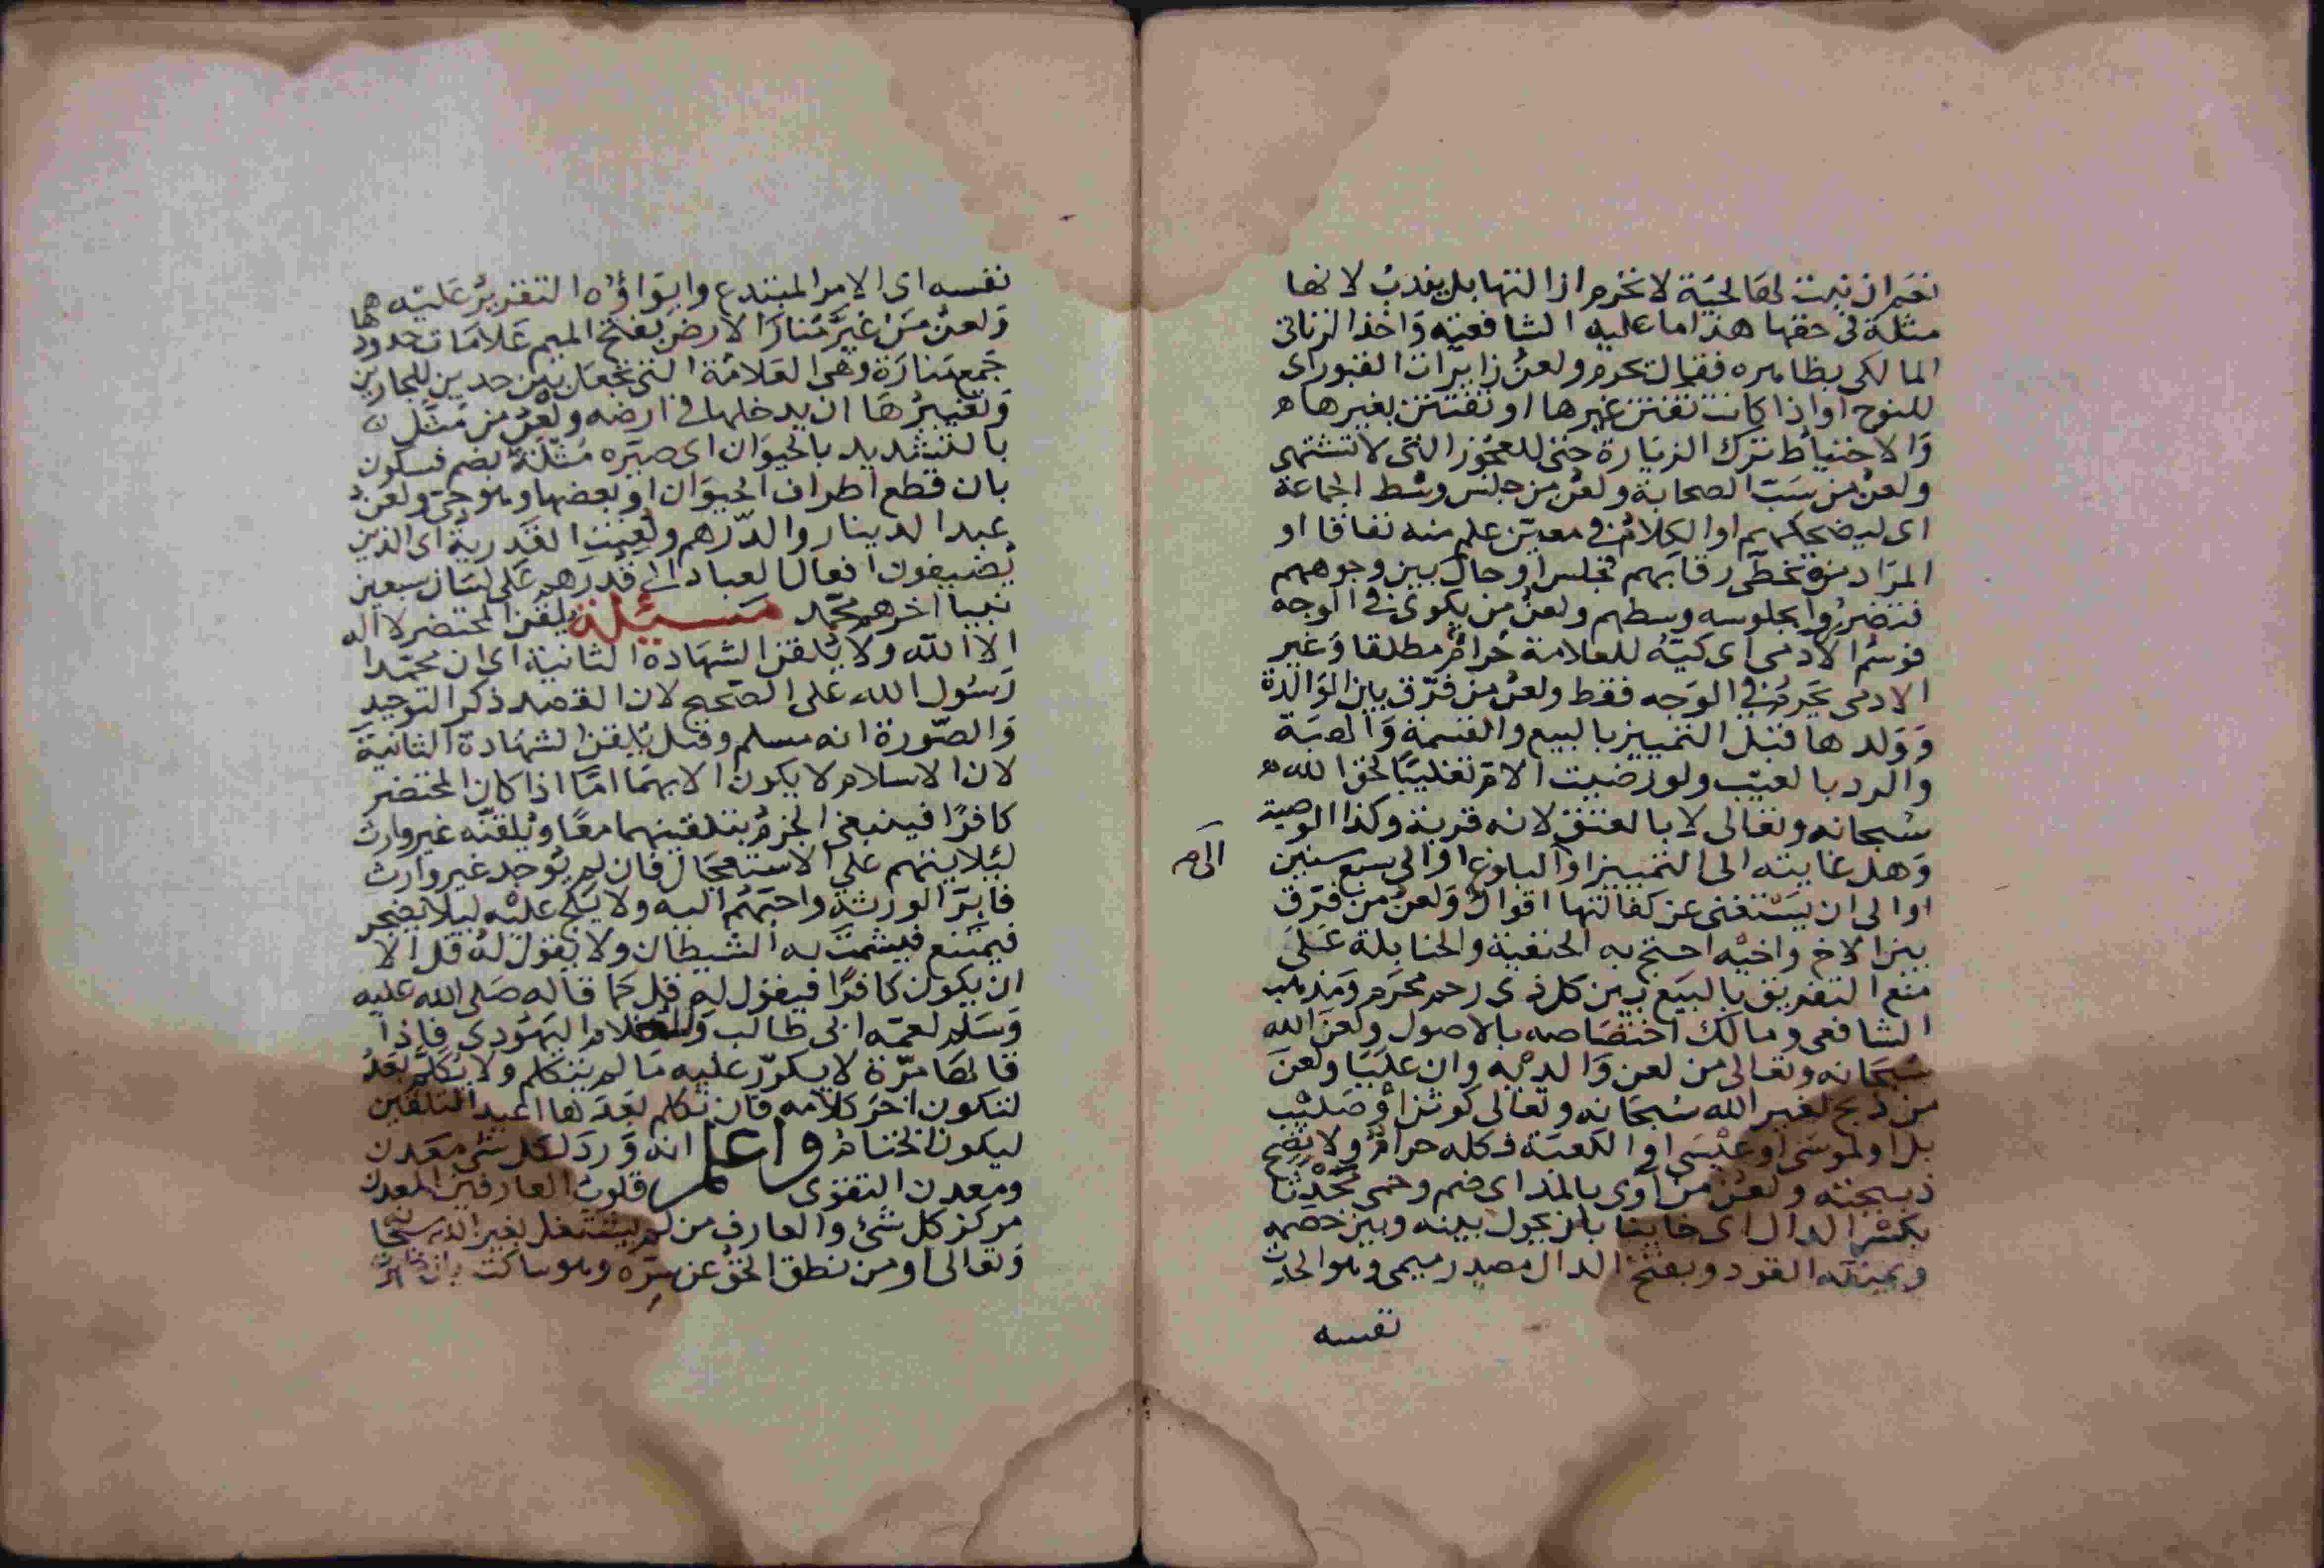 نعم ان نبتت لها لحية لا تحرم ازالتها بل يندب لانها
مثلة في حقها هذا ما عليه الشافعية وَاخذ الزناتى
المالكى بظاهره فقال تحرم ولعن زايرات القبور اى
للنوح اوا اذا كانت تفتن غيرها او تفتتن بغيرها ه
وَالاحتياط ترك الزيارة حتى للعجوز التى لا تشتهى
ولعن من سَبّ الصحابة ولعن من جلس وسْط الجماعة
اى ليضحكهم او الكلام في معيّن علم منه نفاقا او
المرَاد من تخطّى رقابهم فجلس او حال بين وجوههم
فتضرروا بجلوسه وسطهم ولعن من يكوى في الوجه
فوسْم الادمى اى كيّه للعلامة حَرام مطلقا وَغير
الادمى يحَرم في الوَجه فقط ولعن من فرّق بين الوَالدة
وَوَلدها قبل التمييز بالبيع والقسمة وَالهبَة
والرد بالعيْب ولو رضيت الام تغليبًا لحق الله ه
سُبحانه وتعالى لا بالعتق لانه قربة وكذا الوصية
وَهل غايته الى التمييز او البلوغ او الى سبع سنين
الى م
او الى ان يَسْتغنى عن كفالتها اقوال وَلعن من فرّق
بين الاخ واخيْه احتج به الحنفية والحنابلة عَلى
منع التفريق بالبيَع بين كل ذى رحم محَرم وَمذهب
الشافعى ومالك اختصَاصه بالاصول ولعَن الله
سُبحَانه وتعَالى من لعن وَالديْه وان عليَا ولعَن
من ذبح لغير الله سُبحَانه وتعَالى كوثن اوْ صَليْب
بل او لموسَى او عيْسَى او الكعبَة فكله حرام ولا تصح
ذبيحته ولعن من آوى بالمد اى ضم وحمى محْدِثا
بكسْر الدال اى جانيا بان يحول بينه وبين خصمه
ويمنعه القود وبفتح الدال مصدر ميمى وهو الحدث
نفسه
نفسه اى الامر المبتدع وايوَاؤه التقريرُ عَليْه
وَلعن مَن غيَّر مَنارَ الارض بفتح الميم عَلامَات حدودها
جَمع مَنارَة وَهى العَلامَة التى تجعَل بَين حدين للجارين
وَتغييرُهَا ان يدخلها في ارضه ولعن من مثَّل
بالتشديد بالحيوَان اى صيّره مُثْلَة بضم فسكون
بان قطع اطراف الحيوَان او بعضها وهو حىّ ولعن
عبد الدينار والدّرهم ولُعِنت القَدَرية اى الذين
يُضيفون افعال العباد الى قدَرهم عَلى لسَان سبعين
نبيا اخرهم محمّد مَسئلة يلقن المحتضر لا اله
الا الله ولا يُلقن الشهَادة الثانية اى ان محمّدا
رَسُول الله عَلى الصّحيح لان القصد ذكر التوحيد
وَالصّورة انه مسلم وقيل يُلقن الشهَادة الثانيَة
لان الاسلام لا يكون الا بهمَا امّا اذا كان المحتضر
كافرًا فينبغى الجزم بتلقينهما معًا ويُلقنّه غير وارث
ليُلا يتهم عَلى الاستعجَال فان لم يُوجد غير وَارث
فابَرّ الورثَة واحبّهم اليه ولا يلح عليْه ليلا يضجر
فيمتنع فيشمَت به الشيطان ولا يقول لهُ قل الا
ان يكون كافرًا فيقول له قل كما قاله صَلى الله عليه
وَسَلم لعمّه ابى طالب وَللغلام اليهَودى فاذا
قالها مرّة لا يكرّر عليه مَا لم يتكلم ولا يُكلم بَعْدُ
لتكون اخرَ كلامه فان تكلم بَعدَها اعيد التلقين
ليكون الختام واعلم انه وَرَدَ لكل شئ مَعَدن
ومعدن التقوَى قلوبُ العارفين المعدن
مركز كل شئ والعارف من لم يشتغل بغير الله سبحانه
وَتعَالى او من نطق الحقُ عن سِرّه وهو ساكت